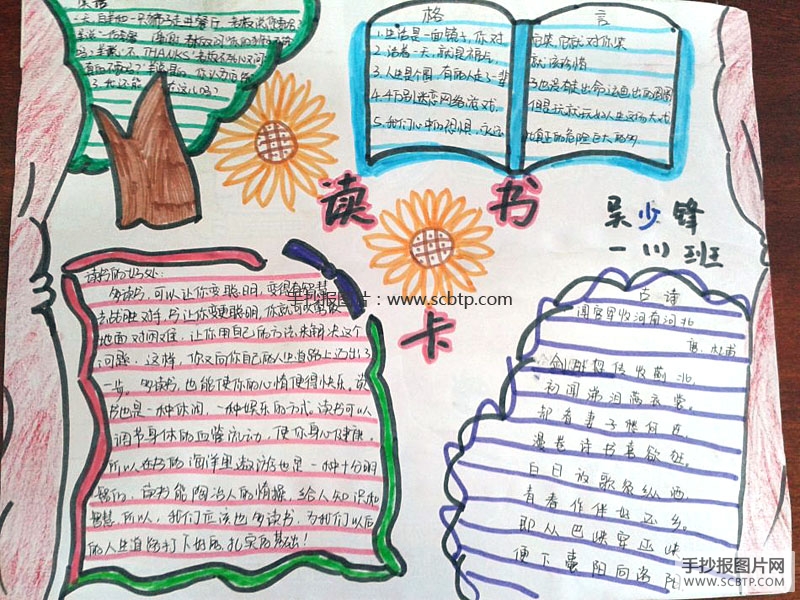 笑话
THANKS
格 言
1.生活是一面镜子,你对它笑,它就对你笑
2.活着一天,就是福气,就该珍惜
3.人生是个圆,有的人走了一辈
4.千万别迷恋网络游戏,
5.我们心中的恐惧,永远
读 书
卡
吴少锋
一(1)班
读书的好处:
多读书,可以让你变聪明,变得有智慧
去战胜对手。书让你变更聪明,你就可以
地面对困难。让你用自己的方法来解决这个
问题.这样,你又向你自己的人生道路上迈出了
一步。多读书,也能使你的心情便得快乐。读
书也是一种休闲,一种娱乐的方式。读书可以
调节身体的血管流动,使你身心健康。
所以在书的海洋里遨游也是一种十分明
智的。读书能陶冶人的情操,给人知识和
智慧.所以,我们应该也多读书,为我们以后
的人生道路打下好的、扎实的基础!
古诗
闻官军收河南河北
唐.杜甫
剑外忽传收蓟北,
初闻涕泪满衣裳。
却看妻子愁何在,
漫卷诗书喜欲狂。
白日放歌须纵酒,
青春作伴好还乡。
即从巴峡穿巫峡
便下襄阳向洛阳
手抄报图片:www.scbtp.com
手抄报图片网
WWW.SCBTP.COM